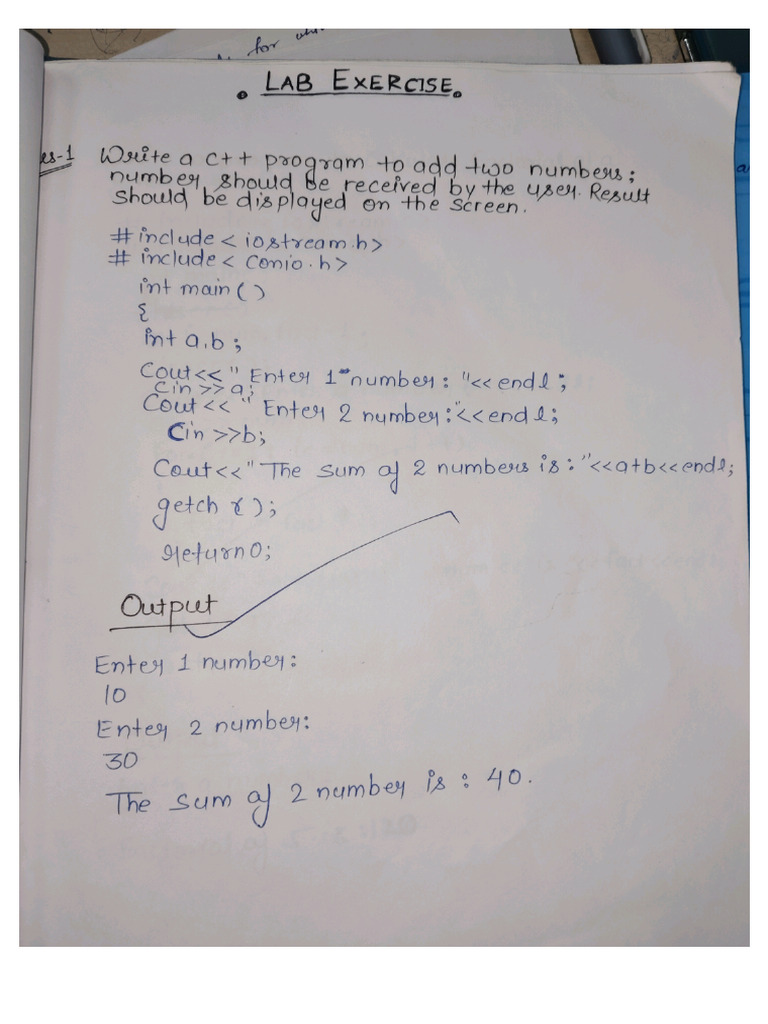 for
. LAB EXERCISE.
es-1 Write a c++ program to add two numbers;
number should be received by the user. Result
should be displayed on the screen.
#include < iostream.h>
# include < conio.h>
int main ()
{
int a,b;
Cout<< " Enter 1 number: "<< endl ;
Cin >> a;
Cout << " Enter 2 number:"<<endl;
Cin >>b;
Cout<<"The sum of 2 numbers is: "<<a+b<<endl;
getch ();
return 0;
Output
Enter 1 number:
10
Enter 2 number:
30
The sum of 2 number is : 40.